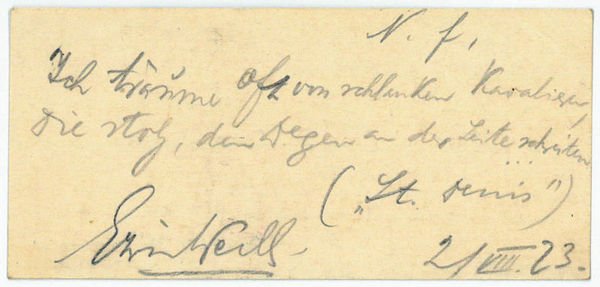 N. f,
Ich träume oft von schlanken Kavalieren,
die stolz, den Degen an der Seite schreiten
...
("St. Denis")
Erwin Weill.
2/VIII. 23.